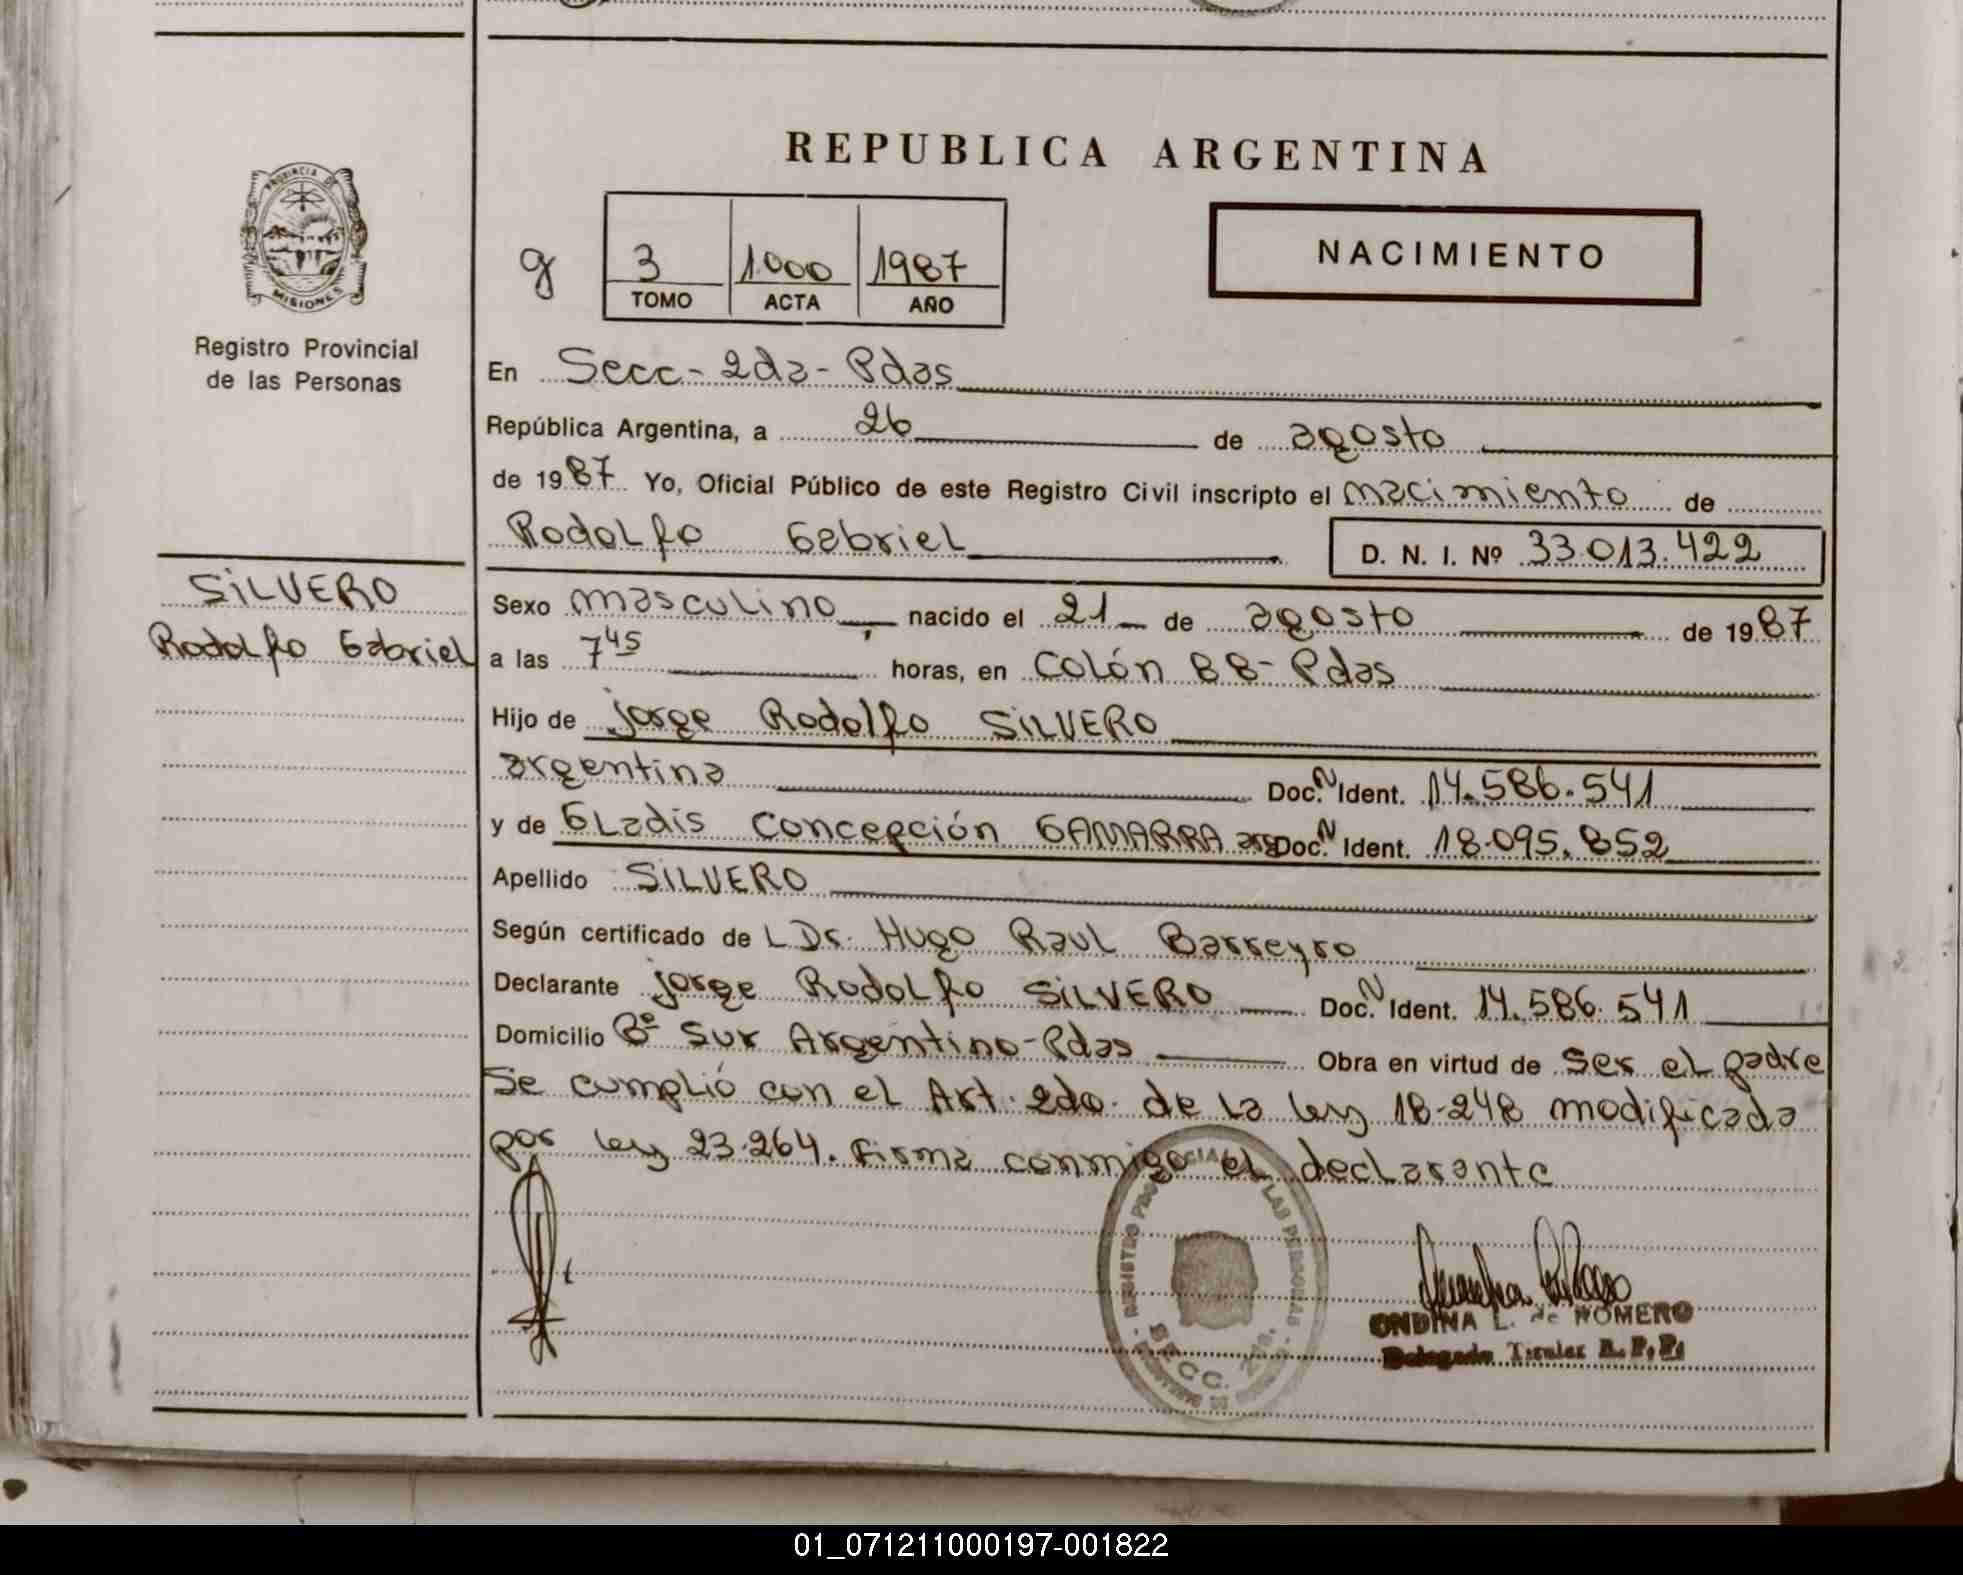 REPUBLICA ARGENTINA
PROVINCIA DE
MISIONES
Registro Provincial
de las Personas
g
3 1.000 1987
TOMO ACTA AÑO
NACIMIENTO
En Secc - 2da - Pdas
República Argentina, a 26 de agosto
de 1987 Yo, Oficial Público de este Registro Civil inscripto el nacimiento de
Rodolfo Gabriel D. N. I. Nº 33.013.422
SILVERO
Rodolfo Gabriel
Sexo masculino, nacido el 21 de agosto de 1987
a las 7 45 horas, en Colón 88 - Pdas
Hijo de Jorge Rodolfo SILVERO
argentina Doc. N Ident. 14.586.541
y de Gladis Concepción GAMARRA arg Doc. N Ident. 18.095.852
Apellido SILVERO
Según certificado de L Dr. Hugo Raul Barreyro
Declarante Jorge Rodolfo SILVERO Doc. N Ident. 14.586.541
Domicilio Bº Sur Argentino - Pdas Obra en virtud de ser el padre
Se cumplió con el Art. 2do. de la ley 18.248 modificada
por ley 23.264. Firma conmigo el declarante
REGISTRO PROVINCIAL LAS PERSONAS
SECC. 2da.
ONDINA L. de ROMERO
Delegada Titular R. P. P.
01_071211000197-001822